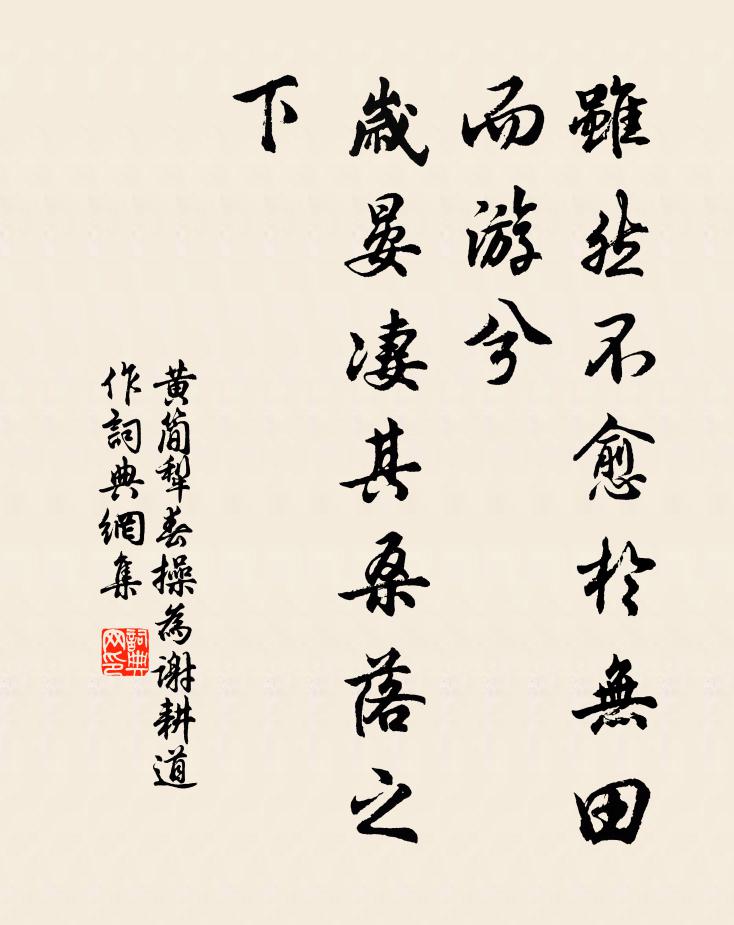 雖然不愈於無田
而游兮
歲晏凄其桑落之
下
黄簡犁春操為谢耕道
作詞典網集
詞典
网印